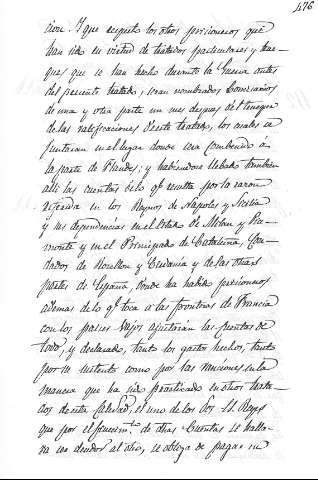 476
cion. Y que respeto los otros pricioneros que
han sido en virtud de tratados particulares y true-
ques que se han hecho durante la Guerra antes
del presente tratado, seran nombrados Comisarios
de una y otra parte un mes despues del trueque
de las ratificaciones deste tratado, los cuales se
juntaran en el lugar donde sea combenido a
la parte de Flandes; y habiendose llebado tambien
alli las cuentas de lo q.e resulta por la razon
referida en los Reynos de Napoles y Sicilia
y sus dependencias en el Estado de Milan y Pia-
monte y en el Principado de Cataluña, Con-
dados de Rosellon y Cerdania y de las otras
partes de España, donde ha habido pricioneros
ademas de lo q.e toca a las fronteras de Francia
con los paises vajos ajustaran las cuentas de
todo, y declarado, tanto los gastos hechos, tanto
por su sustento como por las ranciones en la
manera que ha sido practicado en otros trata-
dos desta calidad, el uno de los Srs. SS. Reyes
que por el fenecim.to de dhas Cuentas se halla-
ra ser deudor al otro, se obliga de pagar en